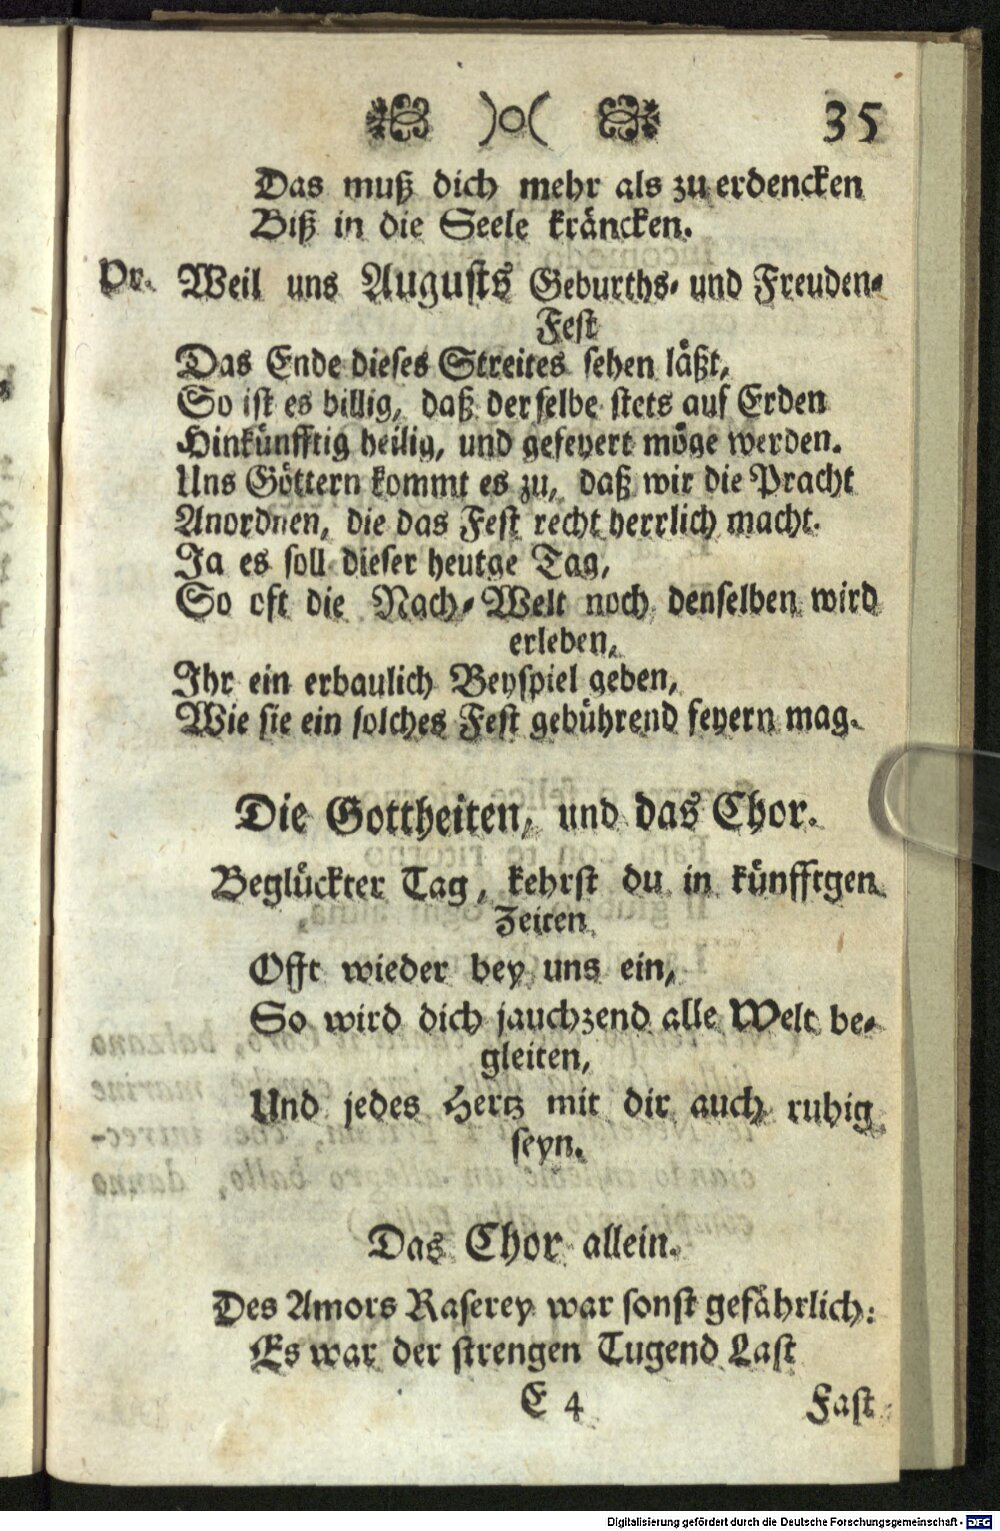 )o( 35
Das muß dich mehr als zu erdencken
Biß in die Seele kräncken.
Pr. Weil uns Augusts Geburths- und Freuden-
Fest
Das Ende dieses Streites sehen läßt,
So ist es billig, daß derselbe stets auf Erden
Hinkünfftig heilig, und gefeyert möge werden.
Uns Göttern kommt es zu, daß wir die Pracht
Anordnen, die das Fest recht herrlich macht.
Ja es soll dieser heutge Tag,
So oft die Nach-Welt noch denselben wird
erleben,
Ihr ein erbaulich Beyspiel geben,
Wie sie ein solches Fest gebührend feyern mag.
Die Gottheiten, und das Chor.
Beglückter Tag, kehrst du in künfftgen
Zeiten
Offt wieder bey uns ein,
So wird dich jauchzend alle Welt be-
gleiten,
Und jedes Hertz mit dir auch ruhig
seyn.
Das Chor allein.
Des Amors Raserey war sonst gefährlich:
Es war der strengen Tugend Last
E 4 Fast
Digitalisierung gefördert durch die Deutsche Forschungsgemeinschaft - DFG